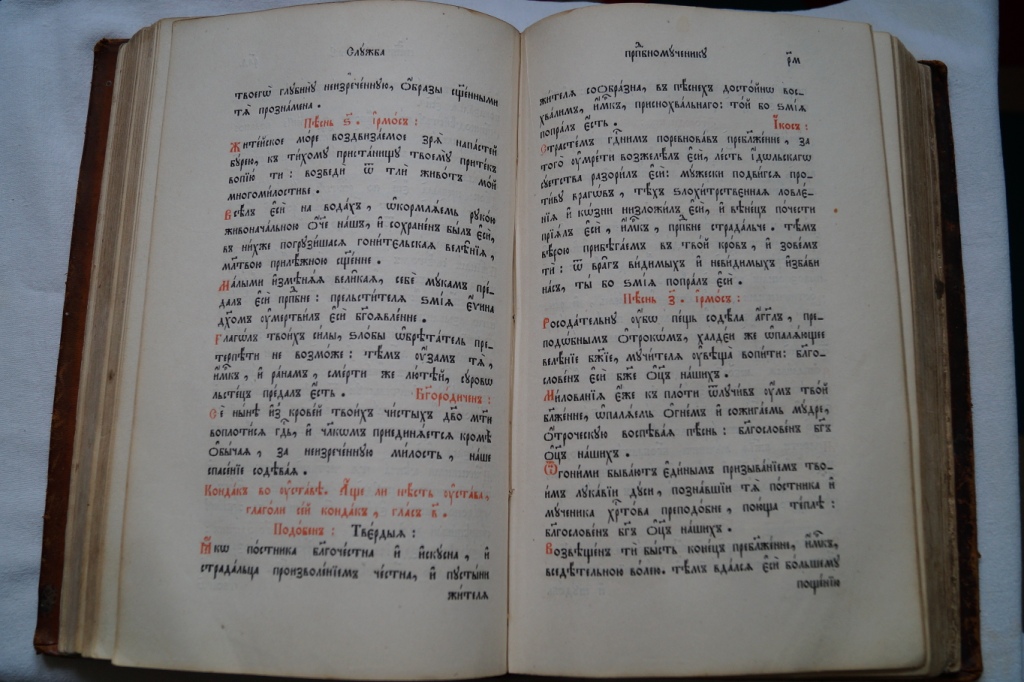 Слꙋ́жба
твоегѡ̀ глꙋбинꙋ̀ неизрече́ннꙋю, ѻ҆́бразы сщ҃е́нными
тѧ̀ прознамена̀.
Пѣ́снь ѕ҃. І҆рмо́съ:
Жите́йское мо́ре воздвиза́емое зрѧ̀ напа́стей
бꙋ́рею, къ ти́хомꙋ приста́нищꙋ твоемꙋ̀ прите́къ
вопїю́ ти: возведѝ ѿ тлѝ живо́тъ мо́й
многоми́лостиве.
Всѣ́лъ є҆сѝ на вода́хъ, ѡ҆кормлѧ́емь рꙋко́ю
живонача́льною ѻ҆́ч҃е на́шъ, и҆ сохране́нъ бы́лъ є҆сѝ,
въ ни́хже погрꙋзи́шасѧ гони́тельскаѧ велѣ̑нїѧ,
мл҃твою прилѣ́жною сщ҃е́нне.
Ма́лыми и҆змѣнѧ́ѧ вели̑каѧ, себѐ мꙋ́камъ пре-
да́лъ є҆сѝ прпⷣбне: прельсти́телѧ ѕмі́ѧ є҆́ѵина
дꙋ́хомъ ᲂу҆мертви́лъ є҆сѝ бг҃оѧвле́нне.
Глаго́лъ твои́хъ си́лы, ѕло́бы ѡ҆брѣта́тель пре-
терпѣ́ти не возмо́же: тѣ́мъ ᲂу҆́замъ тѧ̀,
и҆́мⷬ҇къ, и҆ ра́намъ, сме́рти же лю́тѣй, сꙋро́вѡ
льсте́цъ преда́лъ є҆́сть. Бг҃оро́диченъ:
Се́ ны́нѣ и҆з̾ крове́й твои́хъ чи́стыхъ дв҃о мт҃и
воплоти́сѧ гдⷭ҇ь, и҆ чл҃кѡмъ приединѧ́етсѧ кромѣ̀
ѻ҆бы́чаѧ, за неизрече́ннꙋю ми́лость, на́ше
спасе́нїе содѣва́ѧ.
Конда́къ во ᲂу҆ста́вѣ. А҆́ще ли нѣ́сть ᲂу҆ста́ва,
глаго́ли се́й конда́къ, гла́съ в҃.
Подо́бенъ: Тве́рдыѧ:
Ꙗ҆́кѡ по́стника бл҃гоче́стна и҆ и҆скꙋ́сна, и҆
страда́льца произволе́нїемъ че́стна, и҆ пꙋсты́ни
жи́телѧ
прпⷣбномꙋ́ченикꙋ
рм҃
жи́телѧ соѻбра́зна, въ пѣ́снехъ досто́йнѡ вос-
хва́лимъ, и҆́мⷬ҇къ, приснохва́льнаго: то́й бо ѕмі́ѧ
попра́лъ є҆́сть. І҆́косъ:
Страсте́мъ гдⷭ҇нимъ поревнова́въ пребл҃же́нне, за
того̀ ᲂу҆мре́ти возжелѣ́лъ є҆сѝ, ле́сть і҆́дѡльскагѡ
сꙋ́етства разори́лъ є҆сѝ: мꙋ́жески подви́гсѧ про-
ти́вꙋ врагѡ́въ, тѣ́хъ ѕлохи́трєтвеннаѧ ловлє́-
нїѧ и҆ кѡ́зни низложи́лъ є҆сѝ, и҆ вѣне́цъ по́чести
прїѧ́лъ є҆сѝ, и҆́мⷬ҇къ, прпⷣбне страда́льче. тѣ́мъ
вѣ́рою прибѣга́емъ въ тво́й кро́въ, и҆ зове́мъ
тѝ: ѿ вра̑гъ ви́димыхъ и҆ неви́димыхъ и҆зба́ви
на́съ, ты́ бо ѕмі́ѧ попра́лъ є҆сѝ.
Пѣ́снь з҃. І҆рмо́съ:
Росода́тельнꙋ ᲂу҆́бѡ пе́щь содѣ́ла а҆́гг҃лъ, пре-
подѡ́бнымъ ѻ҆трокѡ́мъ, халде́и же ѡ҆палѧ́ющее
велѣ́нїе бж҃їе, мꙋчи́телѧ ᲂу҆вѣща̀ вопи́ти: бл҃го-
слове́нъ є҆сѝ бж҃е ѻ҆ц҃ъ на́шихъ.
Милова́нїѧ є҆́же къ пло́ти ѿлꙋчи́въ ᲂу҆́мъ тво́й
бл҃же́нне, ѡ҆палѧ́емь ѻ҆гне́мъ и҆ сожига́емь мꙋ́дре,
ѻ҆́троческꙋю воспѣва́ѧ пѣ́снь: бл҃гослове́нъ бг҃ъ
ѻ҆ц҃ъ на́шихъ.
Ѿгони́ми быва́ютъ є҆ди́нымъ призыва́нїемъ тво-
и́мъ лꙋка́вїи дꙋ́си, позна́вшїи тѧ̀ по́стника и҆
мꙋ́ченика хрⷭ҇то́ва преподо́бне, пою́ща те́плѣ:
бл҃гослове́нъ бг҃ъ ѻ҆ц҃ъ на́шихъ.
Возвѣще́нъ тѝ бы́сть коне́цъ пребл҃же́нне, и҆́мⷬ҇къ,
вседѣ́тельною во́лею. тѣ́мъ вда́лсѧ є҆сѝ бо́льшемꙋ
поще́нїю